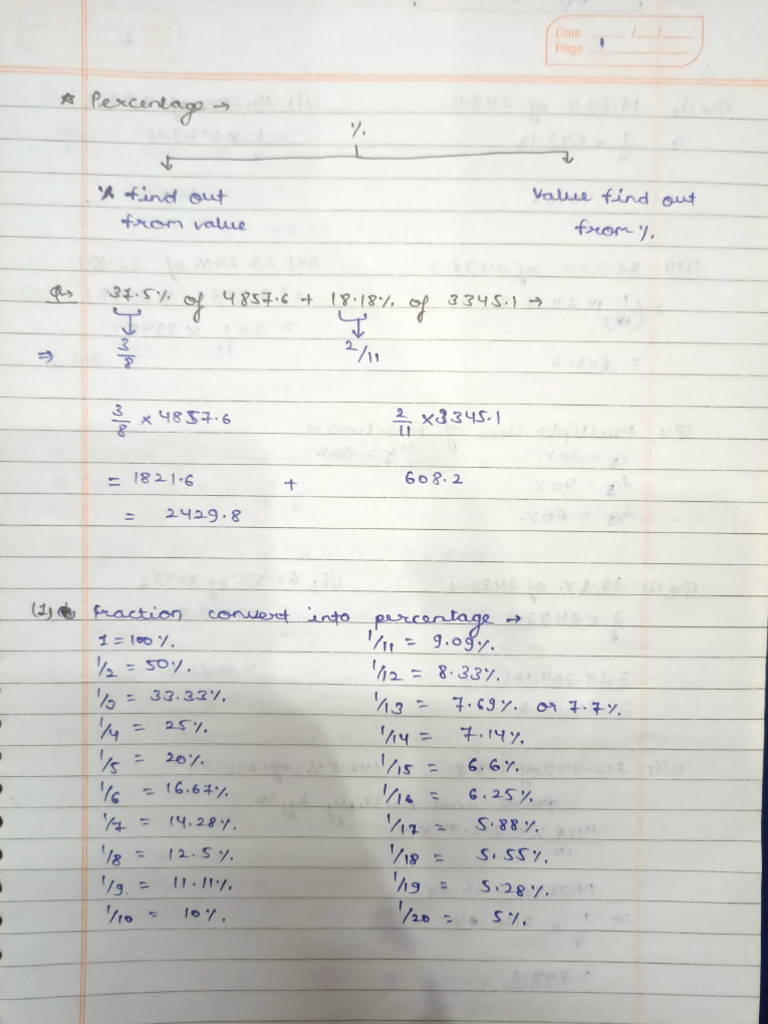 Date __/__/__
Page 1
* Percentage →
%
% find out from value
value find out from %.
Q→ 37.5% of 4857.6 + 18.18% of 3345.1 →
⇒ 3/8 2/11
3/8 × 4857.6 2/11 × 3345.1
= 1821.6 + 608.2
= 2429.8
(1) fraction convert into percentage →
1 = 100%. 1/11 = 9.09%.
1/2 = 50%. 1/12 = 8.33%.
1/3 = 33.33%. 1/13 = 7.69%. or 7.7%.
1/4 = 25%. 1/14 = 7.14%.
1/5 = 20%. 1/15 = 6.6%.
1/6 = 16.67%. 1/16 = 6.25%.
1/7 = 14.28%. 1/17 = 5.88%.
1/8 = 12.5%. 1/18 = 5.55%.
1/9 = 11.11%. 1/19 = 5.28%.
1/10 = 10%. 1/20 = 5%.